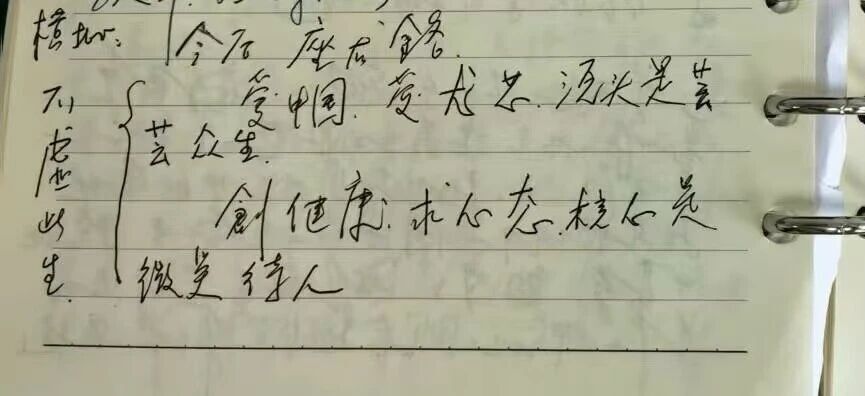 今后 座右铭.
不虚此生.
爱中国. 爱龙芯. 源头是芸
芸众生.
創健康. 求心态. 核心是
微笑待人